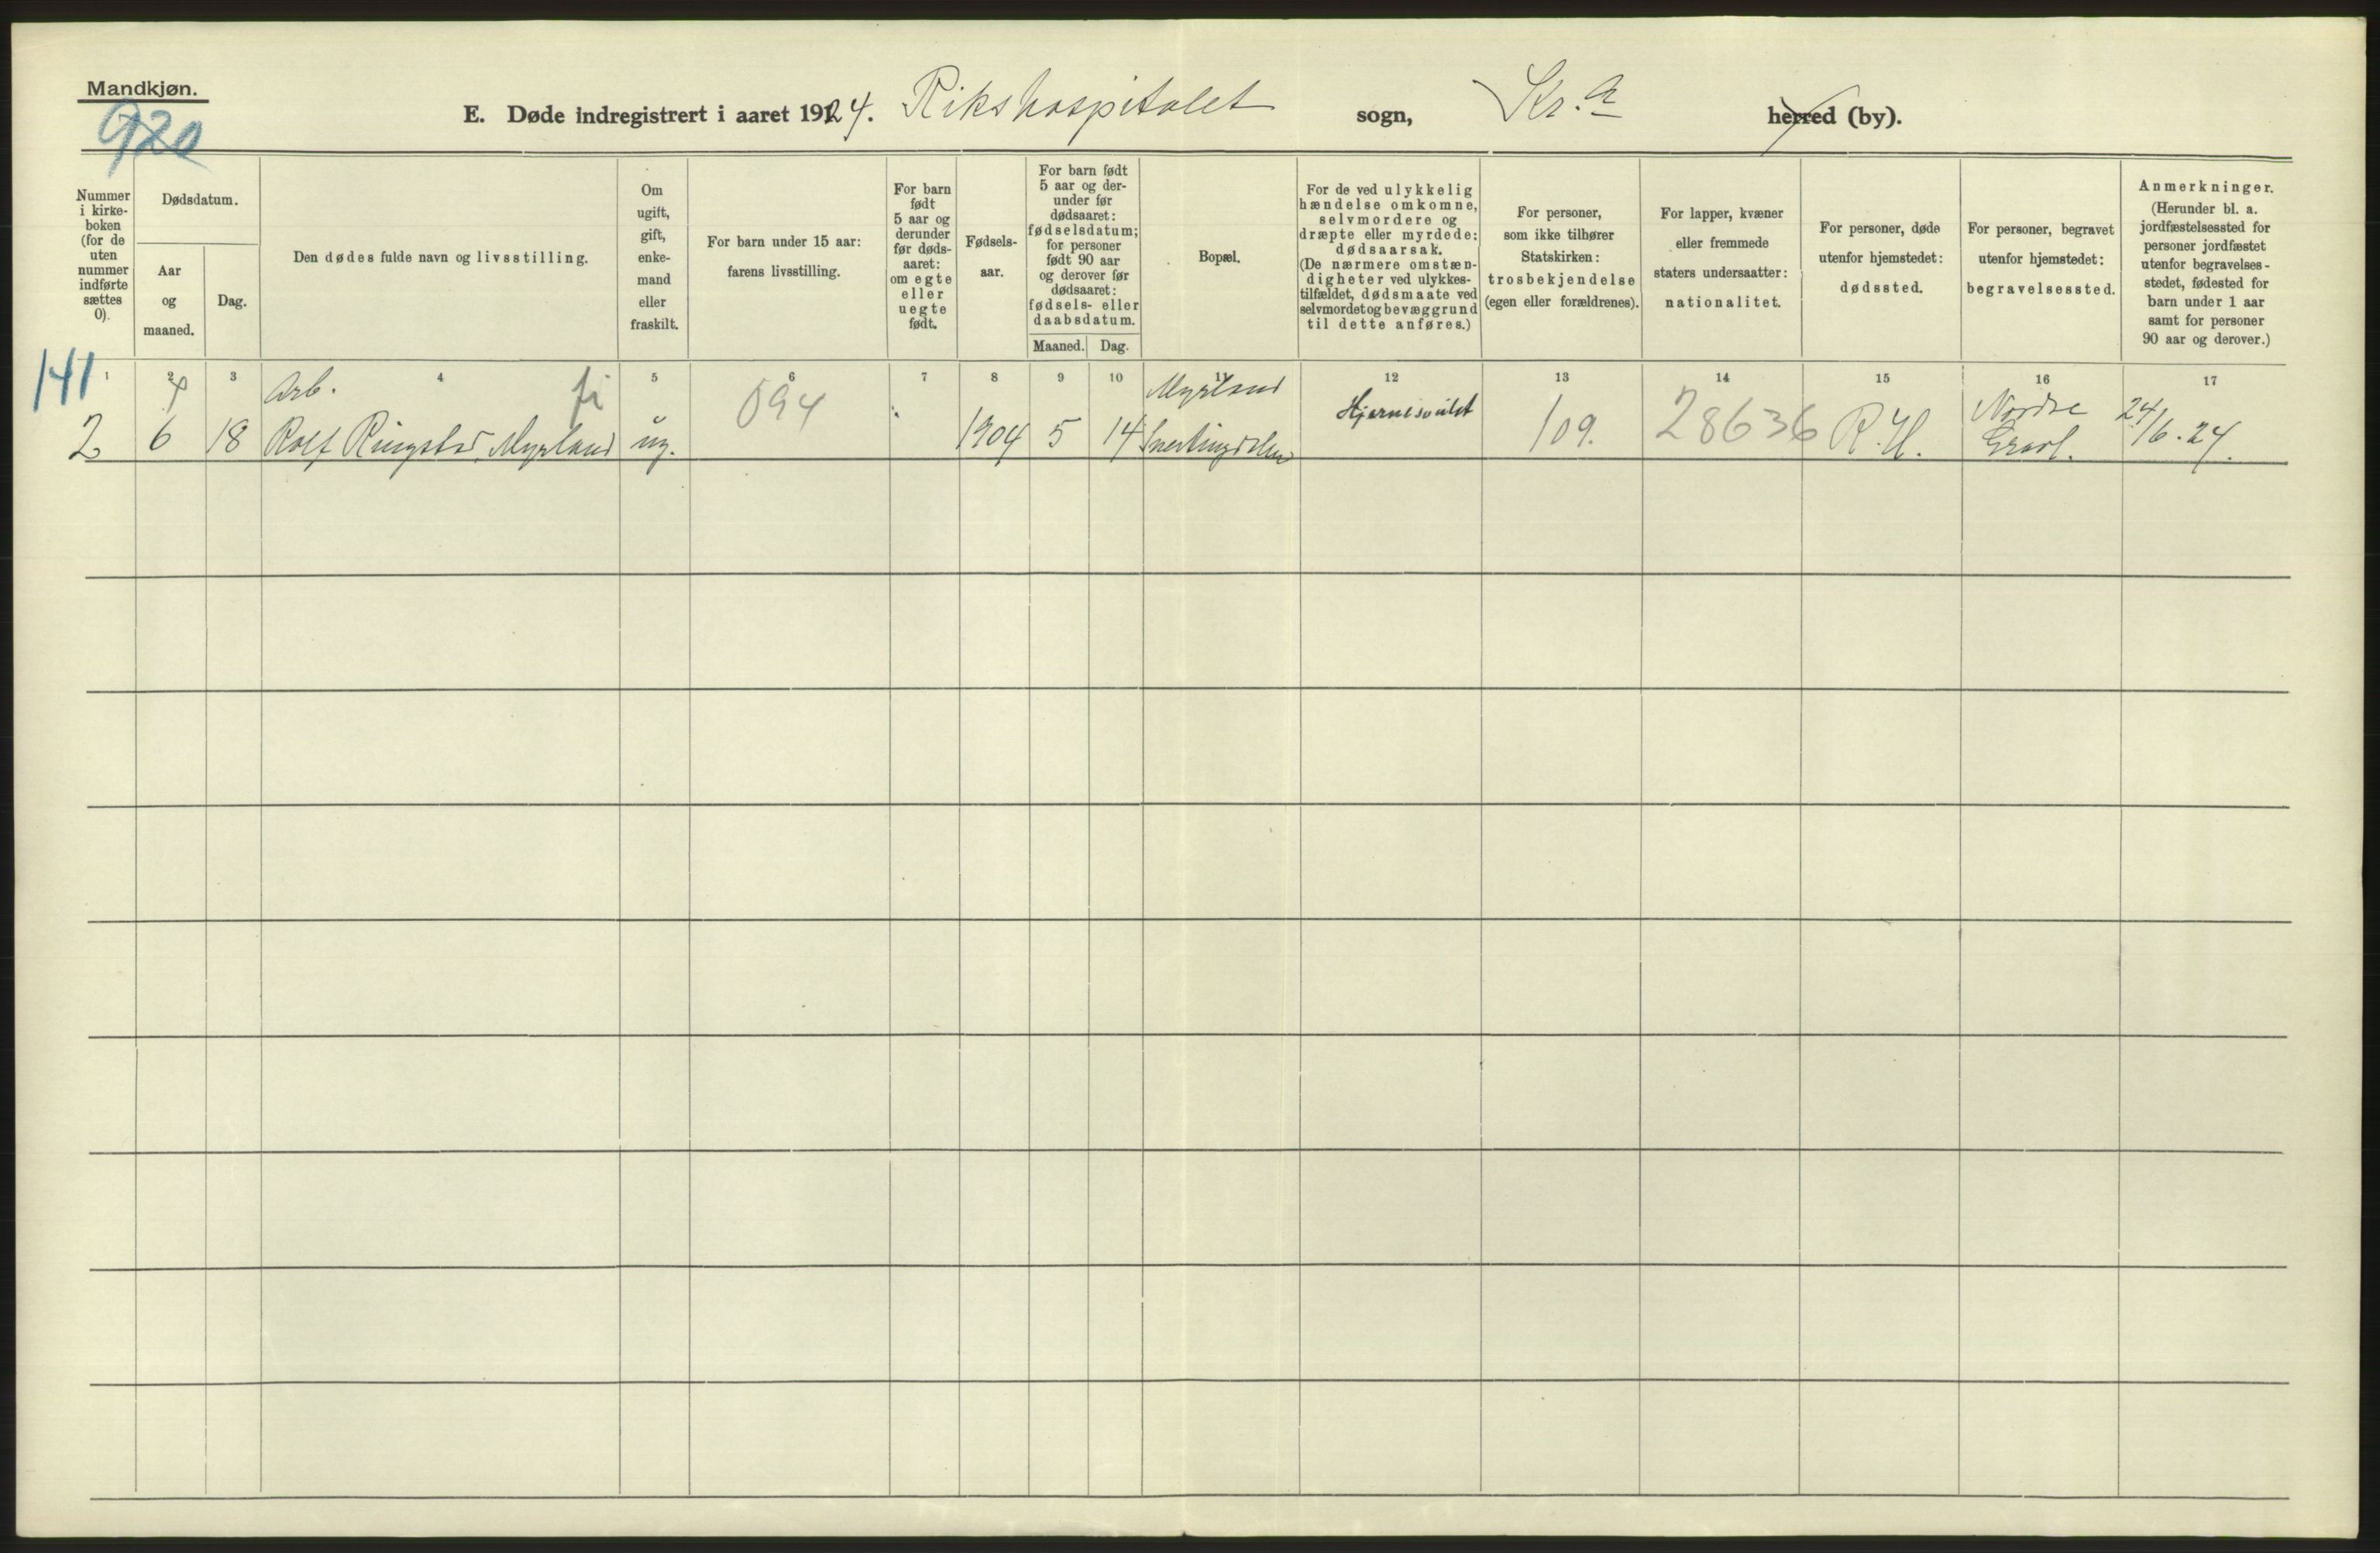 Mandkjøn.
920
E. Døde indregistrert i aaret 1924. Rikshospitalet sogn, Kr.a herred (by).
Nummer
i kirke-
boken
(for de
uten
nummer
indførte
sættes
0).
Dødsdatum.
Aar
og
maaned.
Dag.
Den dødes fulde navn og livsstilling.
Om
ugift,
gift,
enke-
mand
eller
fraskilt.
For barn under 15 aar:
farens livsstilling.
For barn
født
5 aar og
derunder
før døds-
aaret:
om egte
eller
uegte
født.
Fødsels-
aar.
For barn født
5 aar og der-
under før
dødsaaret:
fødselsdatum;
for personer
født 90 aar
og derover før
dødsaaret:
fødsels- eller
daabsdatum.
Maaned. Dag.
Bopæl.
For de ved ulykkelig
hændelse omkomne,
selvmordere og
dræpte eller myrdede:
dødsaarsak.
(De nærmere omstæn-
digheter ved ulykkes-
tilfældet, dødsmaate ved
selvmordet og bevæggrund
til dette anføres.)
For personer,
som ikke tilhører
Statskirken:
trosbekjendelse
(egen eller forældrenes).
For lapper, kvæner
eller fremmede
staters undersaatter:
nationalitet.
For personer, døde
utenfor hjemstedet:
dødssted.
For personer, begravet
utenfor hjemstedet:
begravelsessted.
Anmerkninger.
(Herunder bl. a.
jordfæstelsessted for
personer jordfæstet
utenfor begravelses-
stedet, fødested for
barn under 1 aar
samt for personer
90 aar og derover.)
1 2 3 4 5 6 7 8 9 10 11 12 13 14 15 16 17
141 Arb. fi 094 Myrland Hjernesvulst Nordre 24/6.24.
2 6 18 Rolf Ringstad Myrland ug. 1904 5 14 Snertingdalen 109. 28636 R.H. Gravl.